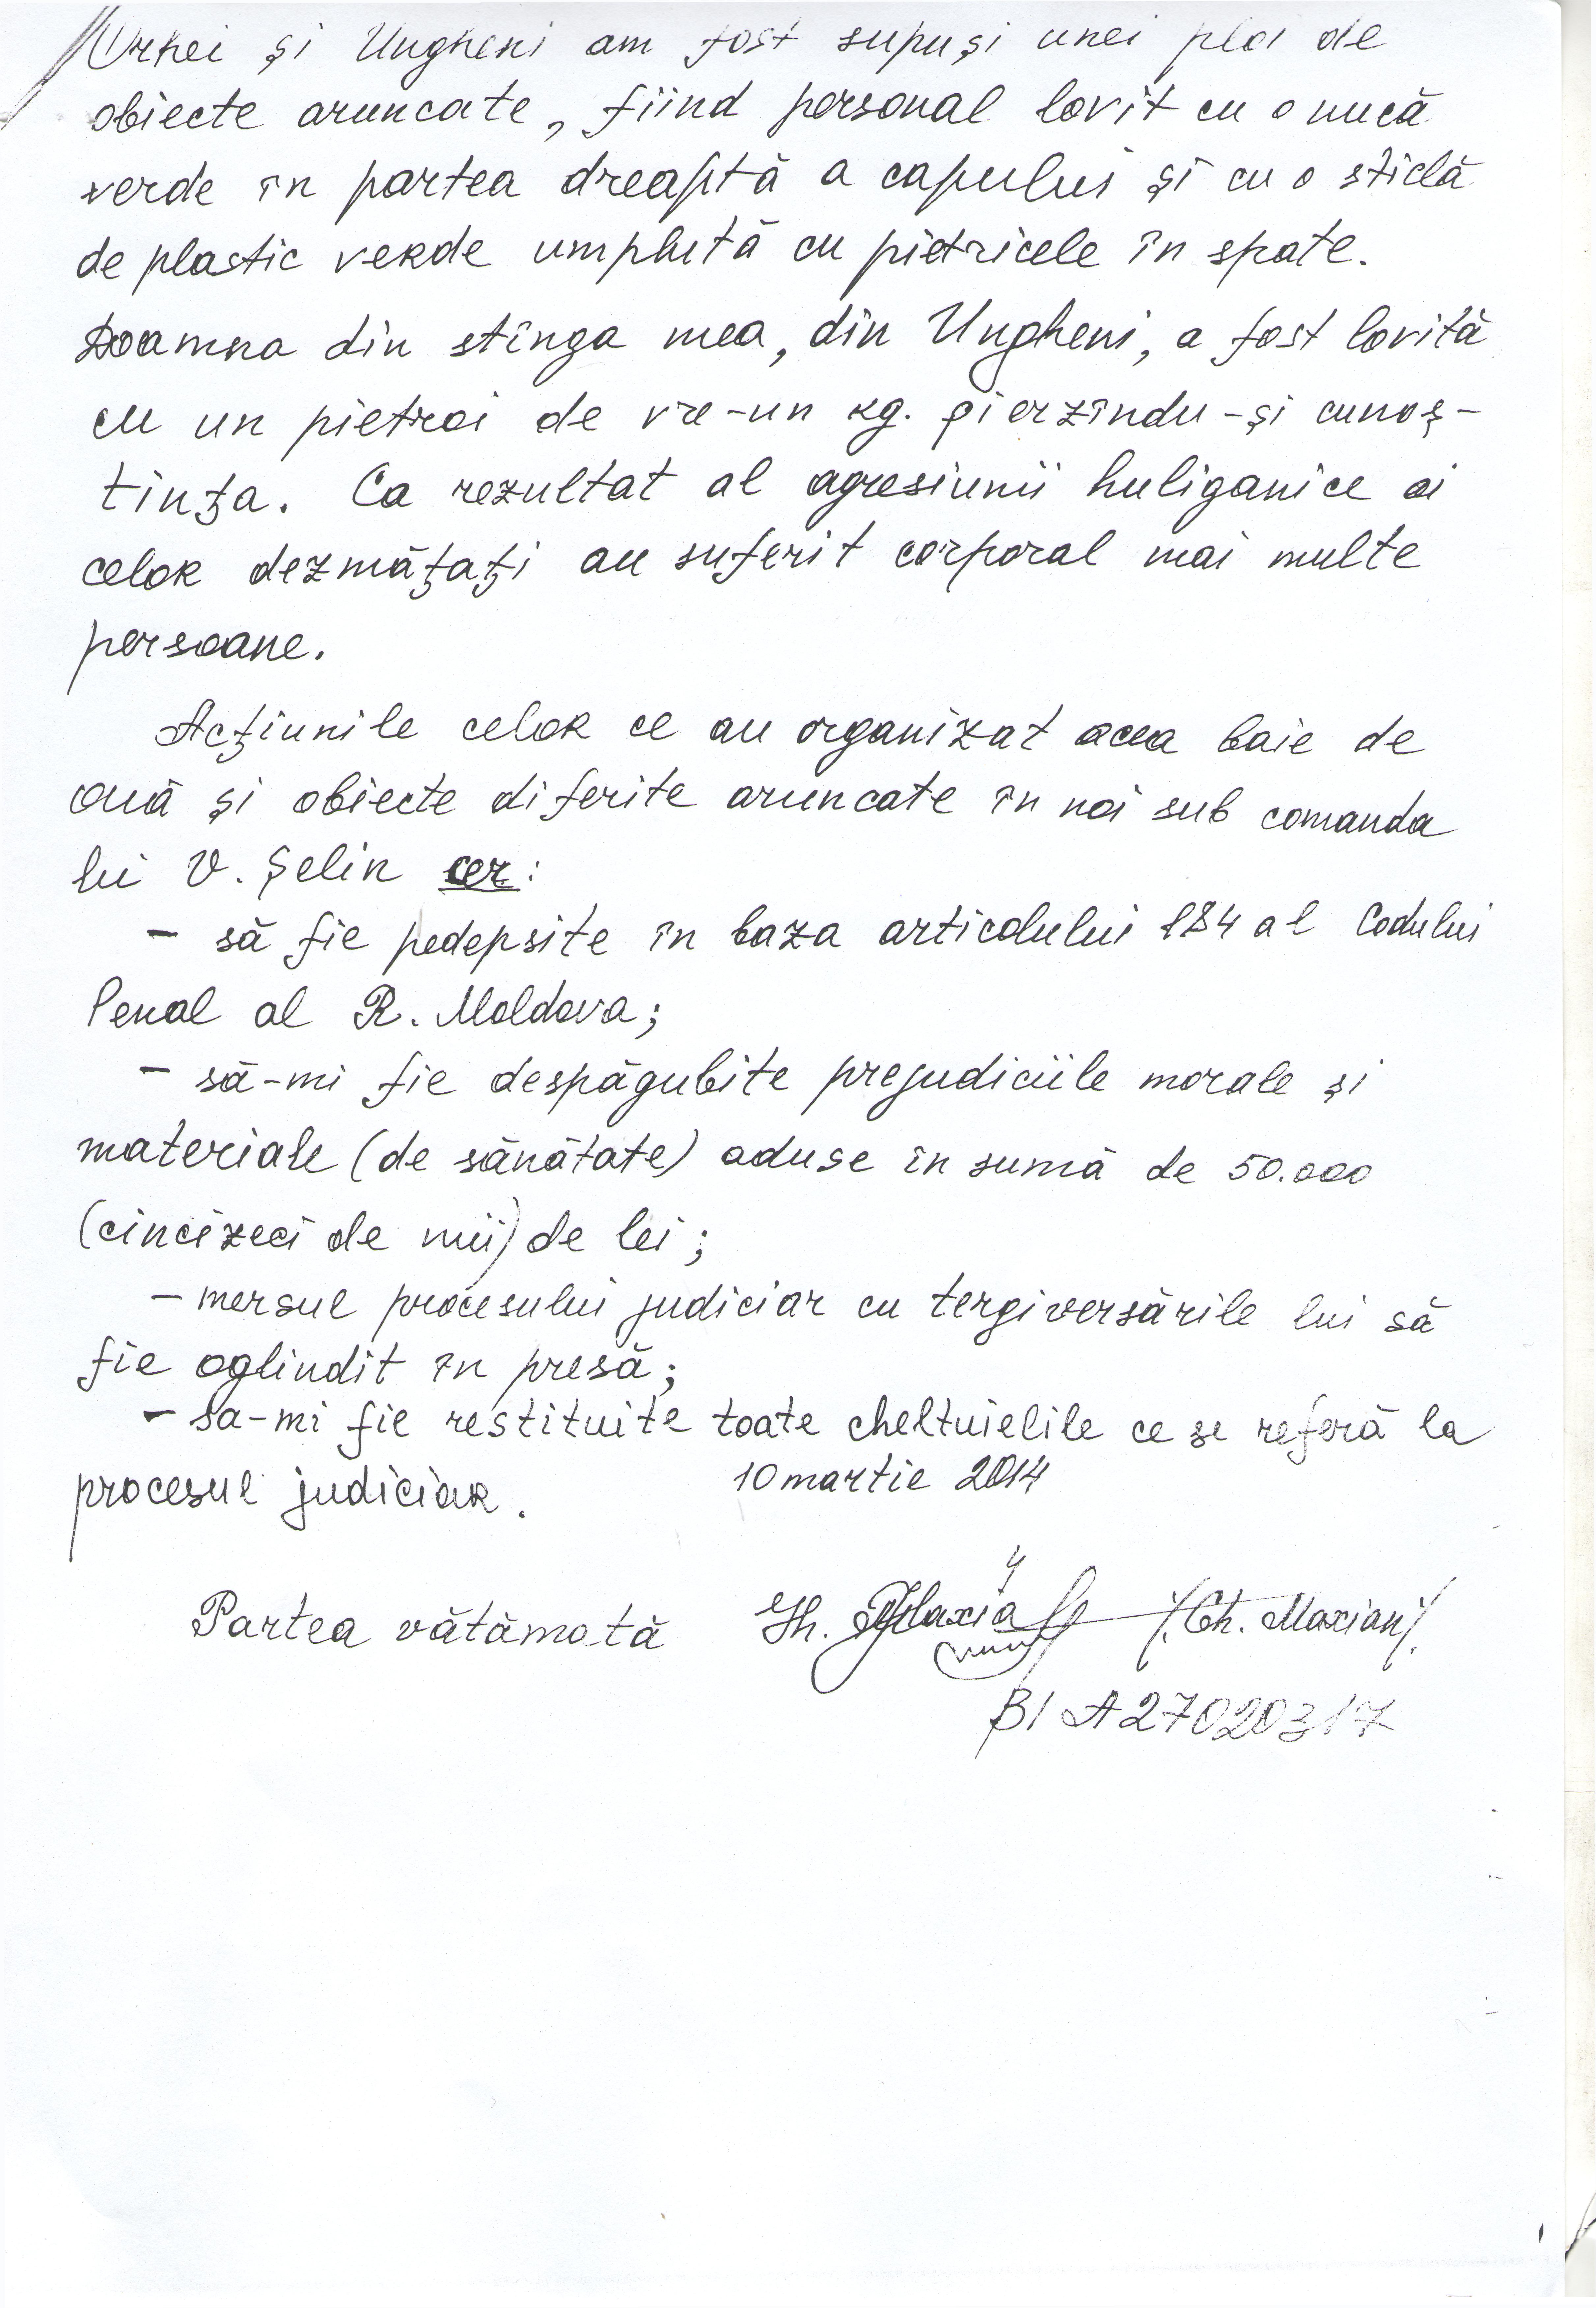 Orhei şi Ungheni am fost supuşi unei ploi de
obiecte aruncate, fiind personal lovit cu o nucă
verde în partea dreaptă a capului şi cu o sticlă
de plastic verde umplută cu pietricele în spate.
Doamna din stînga mea, din Ungheni, a fost lovită
cu un pietroi de vre-un kg. pierzîndu-şi cunoş-
tinţa. Ca rezultat al agresiunii huliganice ai
celor dezmăţaţi au suferit corporal mai multe
persoane.
Acţiunile celor ce au organizat acea baie de
ouă şi obiecte diferite aruncate în noi sub comanda
lui V. Şelin cer:
- să fie pedepsite în baza articolului 184 al Codului
Penal al R. Moldova;
- să-mi fie despăgubite prejudiciile morale şi
materiale (de sănătate) aduse în sumă de 50.000
(cincizeci de mii) de lei;
- mersul procesului judiciar cu tergiversările lui să
fie oglindit în presă;
- sa-mi fie restituite toate cheltuielile ce se referă la
procesul judiciar. 10 martie 2014
Partea vătămată Gh. /Gh. Maxian/.
BI A27020317